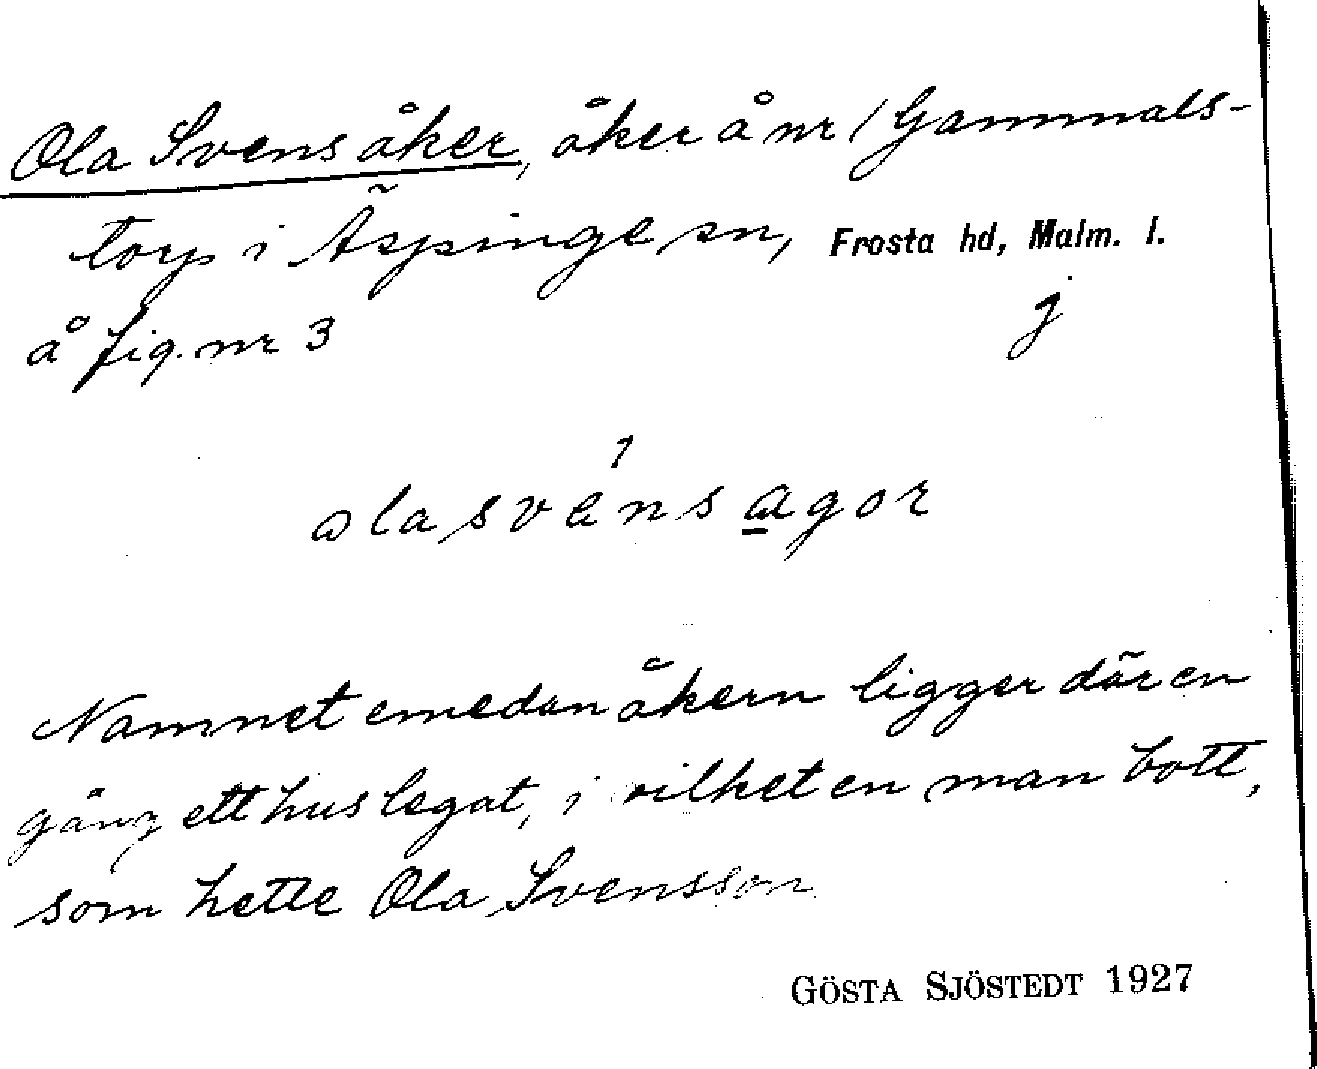 Ola Svens åker, åker å nr 1 Gammals-
torp i Äspinge sn, Frosta hd, Malm. l.
å fig. nr 3 j
1
olasvénsagor
Namnet emedan åkern ligger där en
gång ett hus legat, i vilket en man bott,
som hette Ola Svensson
GÖSTA SJÖSTEDT 1927